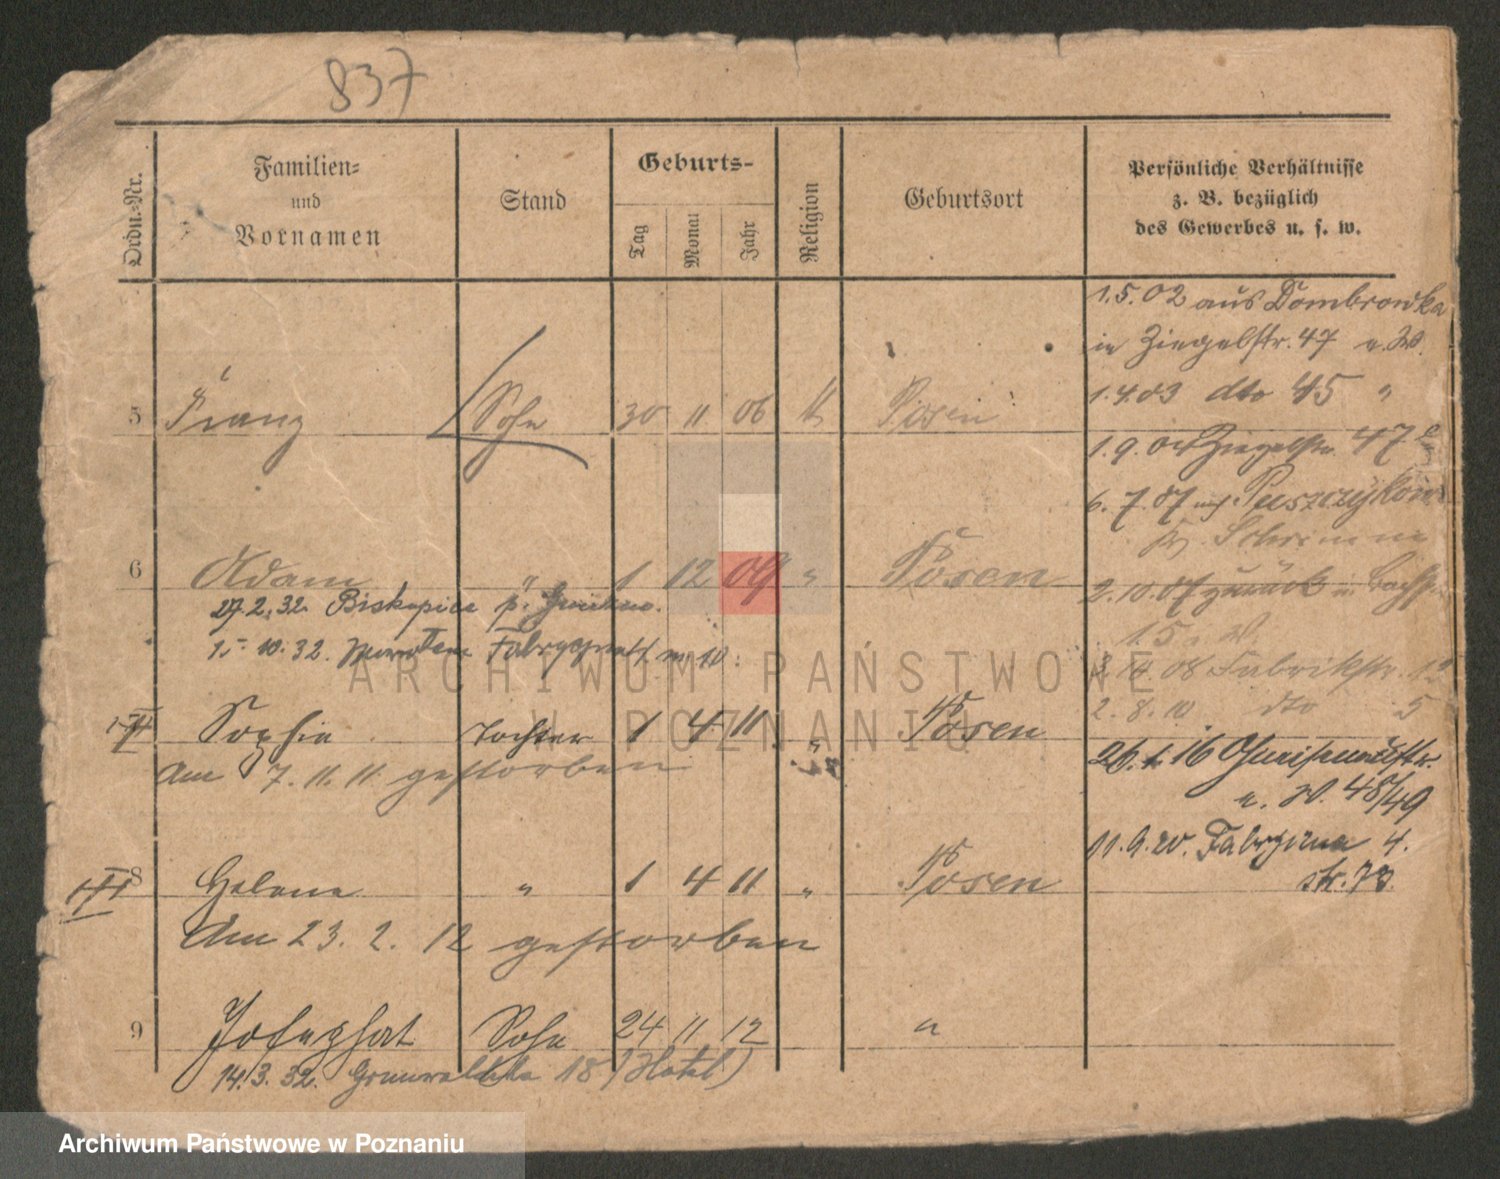 837
Ordn.-Nr.
Familien-
und
Vornamen
Stand
Geburts-
Tag
Monat
Jahr
Religion
Geburtsort
Persönliche Verhältnisse
z. B. bezüglich
des Gewerbes u. s. w.
1.5.02 aus Dombrowka
in Ziegelstr. 47 a. W.
1.4.03 dto 45 "
5 Franz Sohn 30 11 06 k Posen
1.9.04 Ziegelstr. 47
6.7.07 Puszczykow
Schrimm
6 Adam " 1 12 09 " Posen
2.10.07 zurück
27.2.32. Biskupice p.
15 a. W.
1.10.32. nr 10.
14.08 Fabrikstr. 12
2.8.10 dto 5
Sophie Tochter 1 4 11 " Posen
Am 7.11.11 gestorben
26. 16
a. W. 48/49
11.9.20. Fabryczna 4.
8 Helene " 1 4 11 " Posen
str. 73.
Am 23.2.12 gestorben
9 Josephat Sohn 24 11 12 "
14.3.32. Grunwaldzka 18 (Hotel)
ARCHIWUM PAŃSTWOWE
W POZNANIU
Archiwum Państwowe w Poznaniu